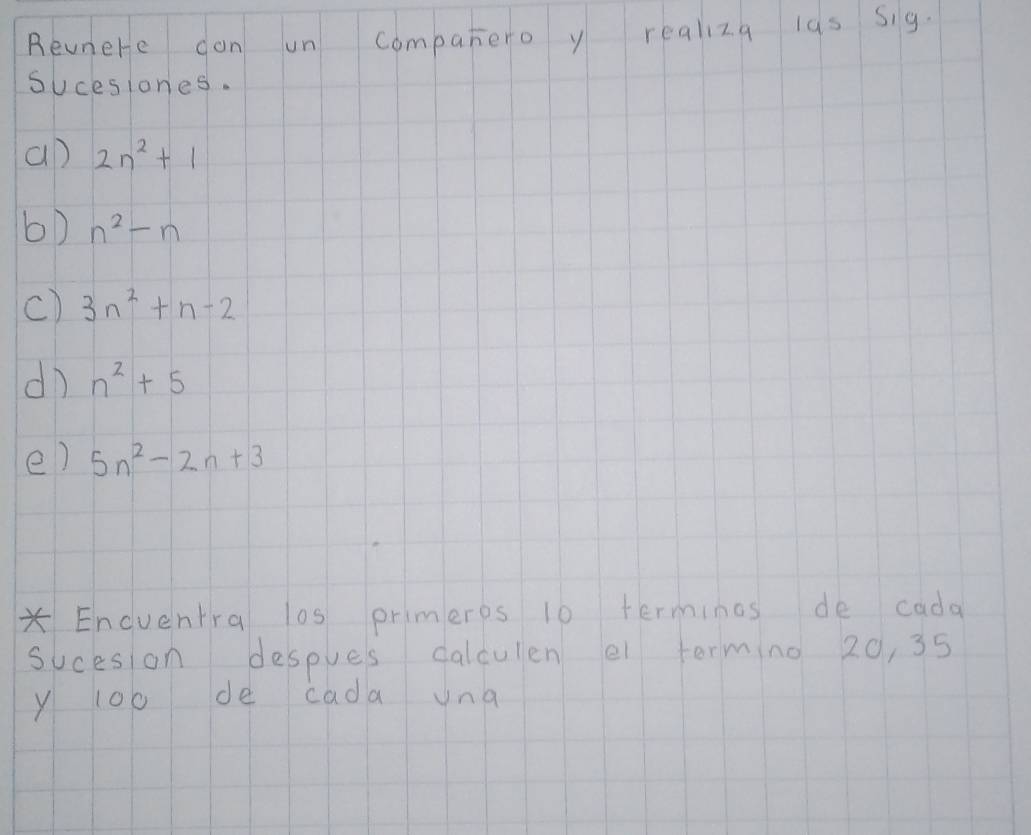 Reunete con un compañero y realiza las sig.
Sucesiones.
a) 2n² + 1
b) n² - n
c) 3n² + n - 2
d) n² + 5
e) 5n² - 2n + 3
* Encuentra los primeros 10 terminos de cada
Sucesion despues calculen el termino 20, 35
y 100 de cada una